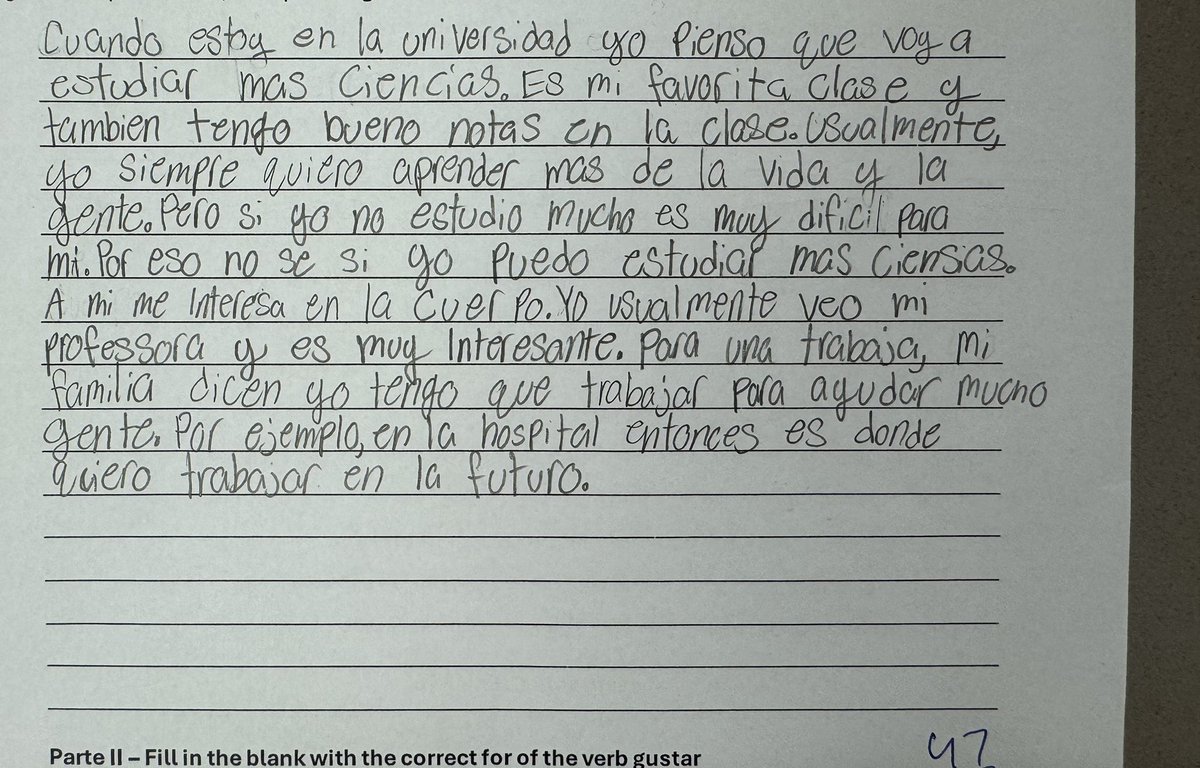 Cuando estoy en la universidad yo pienso que voy a
estudiar mas Ciencias. Es mi favorita clase y
tambien tengo bueno notas en la clase. Usualmente,
yo siempre quiero aprender mas de la vida y la
gente. Pero si yo no estudio mucho es muy dificil para
mi. Por eso no se si yo puedo estudiar mas ciensias.
A mi me interesa en la Cuerpo. Yo usualmente veo mi
professora y es muy interesante. Para una trabaja, mi
familia dicen yo tengo que trabajar para ayudar mucho
gente. Por ejemplo, en la hospital entonces es donde
quiero trabajar en la futuro.
Parte II – Fill in the blank with the correct for of the verb gustar
47